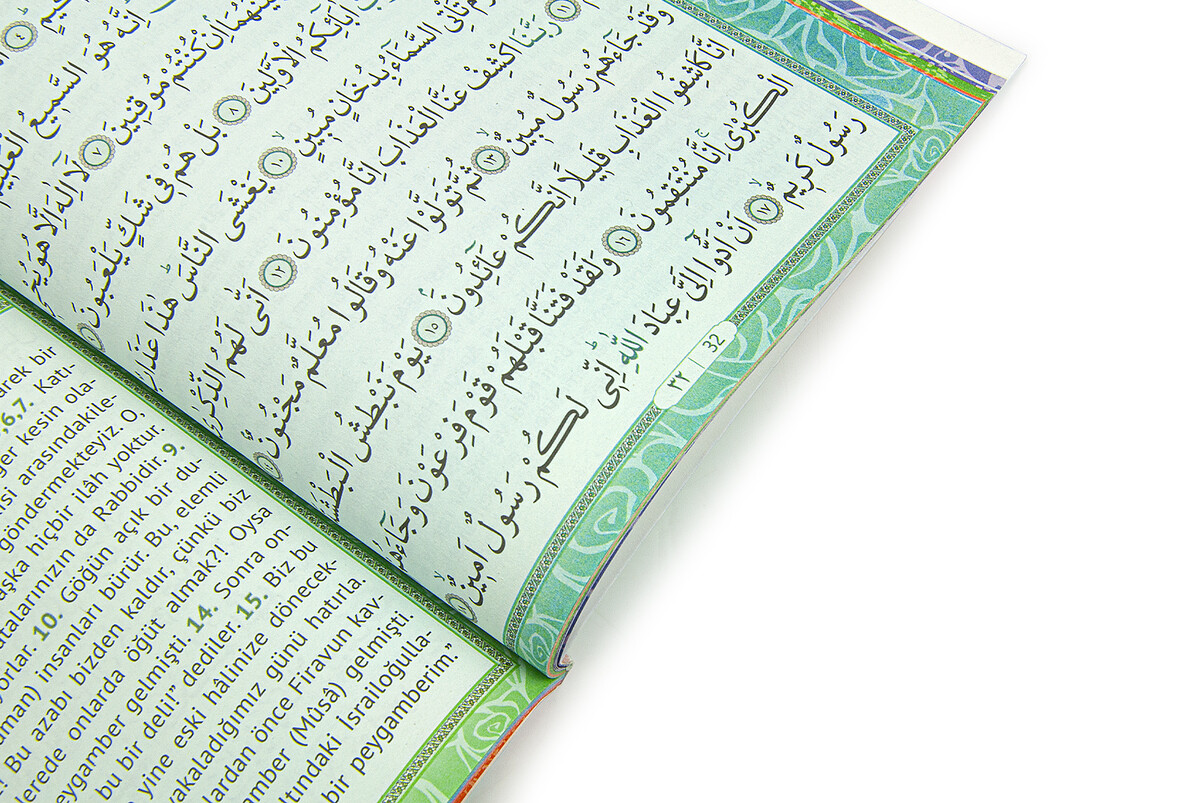 حَكِيمٍ ٤
اِنَّهُ هُوَ السَّمِيعُ الْعَلِيمُ
بَيْنَهُمَا اِنْ كُنْتُمْ مُوقِنِينَ ٧ لَا اِلٰهَ اِلَّا هُوَ يُحْيِ
اٰبَٓائِكُمُ الْاَوَّلِينَ ٨ بَلْ هُمْ فِى شَكٍّ يَلْعَبُونَ
تَأْتِى السَّمَٓاءُ بِدُخَانٍ مُبِينٍ ١٠ يَغْشَى النَّاسَ هٰذَا عَذَابٌ
١١ رَبَّنَا اكْشِفْ عَنَّا الْعَذَابَ اِنَّا مُؤْمِنُونَ ١٢ اَنّٰى لَهُمُ الذِّكْرٰى
وَقَدْ جَٓاءَهُمْ رَسُولٌ مُبِينٌ ١٣ ثُمَّ تَوَلَّوْا عَنْهُ وَقَالُوا مُعَلَّمٌ مَجْنُونٌ
اِنَّا كَاشِفُوا الْعَذَابِ قَلِيلًا اِنَّكُمْ عَٓائِدُونَ ١٥ يَوْمَ نَبْطِشُ الْبَطْشَةَ
الْكُبْرٰى اِنَّا مُنْتَقِمُونَ ١٦ وَلَقَدْ فَتَنَّا قَبْلَهُمْ قَوْمَ فِرْعَوْنَ وَجَٓاءَهُمْ
رَسُولٌ كَرِيمٌ ١٧ اَنْ اَدُّٓوا اِلَىَّ عِبَادَ اللّٰهِ اِنِّى لَكُمْ رَسُولٌ اَمِينٌ
٣٢ | 32
arek bir
,6,7. Katı-
ğer kesin ola-
isi arasındakile-
göndermekteyiz. O,
aşka hiçbir ilâh yoktur.
atalarınızın da Rabbidir. 9.
yorlar. 10. Göğün açık bir du-
uman) insanları bürür. Bu, elemli
! Bu azabı bizden kaldır, çünkü biz
lerede onlarda öğüt almak?! Oysa
eygamber gelmişti. 14. Sonra on-
bu bir deli!” dediler. 15. Biz bu
yine eski hâlinize dönecek-
yakaladığımız günü hatırla,
lardan önce Firavun kav-
amber (Mûsâ) gelmişti.
ltındaki İsrailoğulla-
bir peygamberim.”